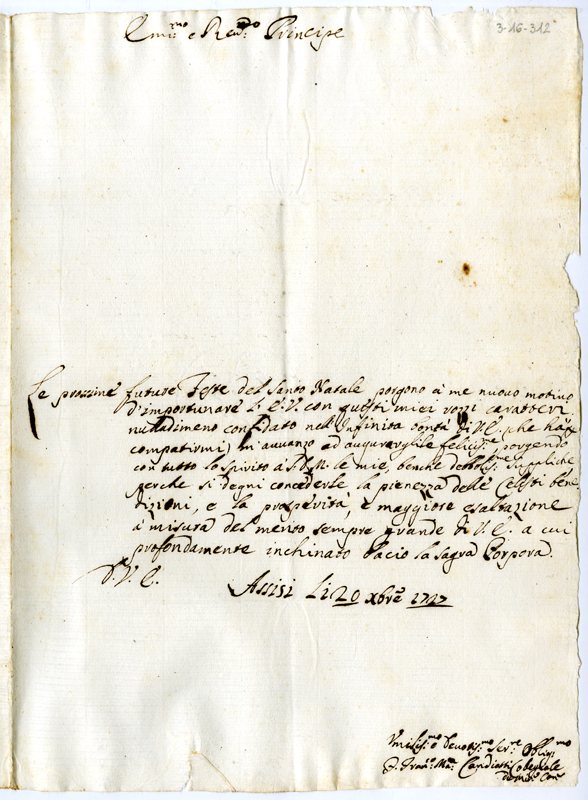 Em:mo e Rev:mo Principe
3-16-312
Le prossime future Feste del Santo Natale porgono à me nuovo motivo
d'importunare L'E.V. con questi miei rozzi caratteri
nulladimeno confidato nell'Infinita bontà di V.E., che hà di
compatirmi) m'avvanzo ad augurargliele felicis:me porgendo
con tutto lo spirito à S.D.M. le mie, benche debolis:me suppliche
perche si degni concederle la pienezza delle Celesti bene
dizioni, e la prosperità, e maggiore esaltazione
à misura del merito sempre grande di V.E. a cui
profondamente inchinato bacio la sagra Porpora.
D. V. E.
Assisi Li 20 xbre 1727
Umilis:mo e Devotis:mo Ser:re Oblig:mo
F. Fran:co Ma: